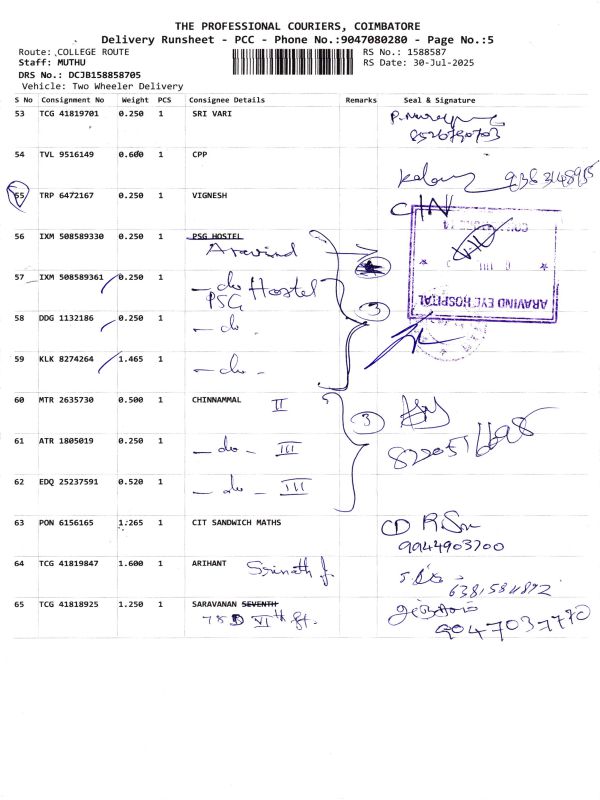 THE PROFESSIONAL COURIERS, COIMBATORE
Delivery Runsheet - PCC - Phone No.:9047080280 - Page No.:5
Route: COLLEGE ROUTE RS No.: 1588587
Staff: MUTHU RS Date: 30-Jul-2025
DRS No.: DCJB158858705
Vehicle: Two Wheeler Delivery
S No Consignment No Weight PCS Consignee Details Remarks Seal & Signature
53 TCG 41819701 0.250 1 SRI VARI
8526790703
54 TVL 9516149 0.600 1 CPP
9363148955
55 TRP 6472167 0.250 1 VIGNESH
56 IXM 508589330 0.250 1 PSG HOSTEL
Aravind
57 IXM 508589361 0.250 1 - do Hostel
PSG
58 DDG 1132186 0.250 1 - do -
3
ARAVIND EYE HOSPITAL
59 KLK 8274264 1.465 1 - do -
60 MTR 2635730 0.500 1 CHINNAMMAL II
3
61 ATR 1805019 0.250 1 - do - III
62 EDQ 25237591 0.520 1 - do - III
63 PON 6156165 1.265 1 CIT SANDWICH MATHS
9944903700
64 TCG 41819847 1.600 1 ARIHANT
65 TCG 41818925 1.250 1 SARAVANAN SEVENTH
78D VIth St.
9047037770